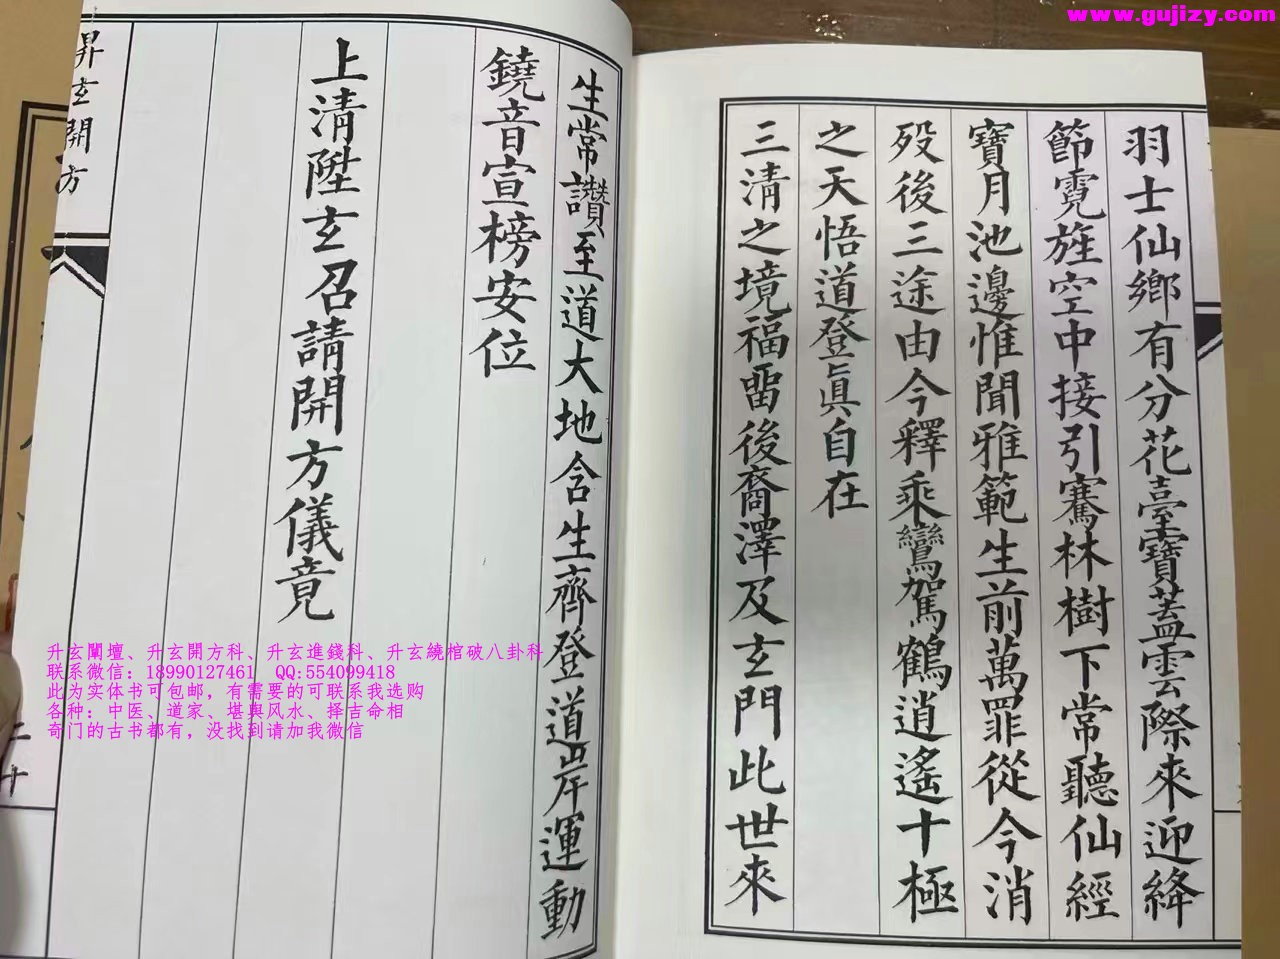 www.gujizy.com
羽士仙鄉有分花臺寶蓋雲際來迎絳
節霓旌空中接引騫林樹下常聽仙經
寶月池邊惟聞雅範生前萬罪從今消
殁後三途由今釋乘鸞駕鶴逍遙十極
之天悟道登眞自在
三淸之境福畱後裔澤及玄門此世來
生常讚至道大地含生齊登道岸運動
鐃音宣榜安位
上淸陞玄召請開方儀竟
昇玄開方
二十
升玄闡壇、升玄開方科、升玄進錢科、升玄繞棺破八卦科
联系微信：18990127461 QQ:554099418
此为实体书可包邮，有需要的可联系我选购
各种：中医、道家、堪舆风水、择吉命相
奇门的古书都有，没找到请加我微信